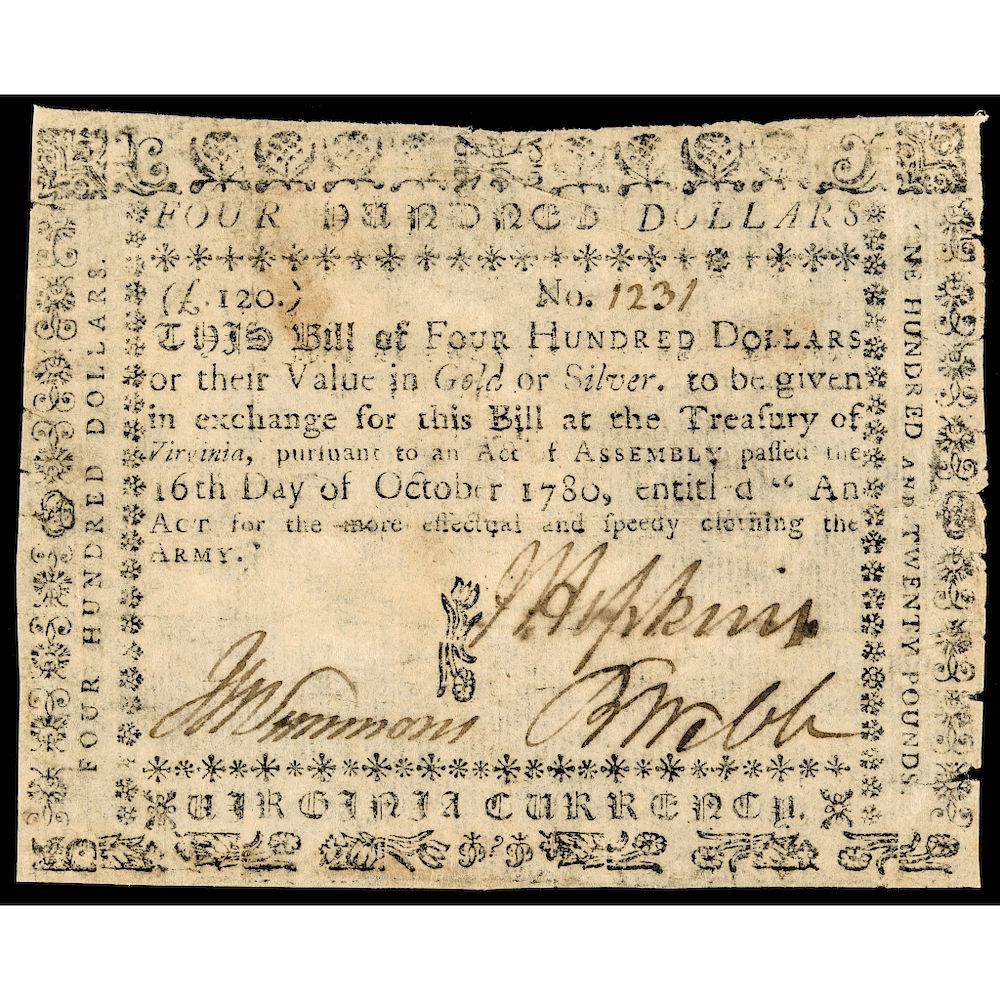 FOUR HUNDRED DOLLARS
(£.120.) No. 1231
THIS Bill of FOUR HUNDRED DOLLARS
or their Value in Gold or Silver. to be given
in exchange for this Bill at the Treaſury of
Virginia, purſuant to an Act of ASSEMBLY paſſed the
16th Day of October 1780, entitled “ An
ACT for the more effectual and ſpeedy clothing the
ARMY.”
J Hopkins
Simmons
B Webb
VIRGINIA CURRENCY.
FOUR HUNDRED DOLLARS.
ONE HUNDRED AND TWENTY POUNDS.